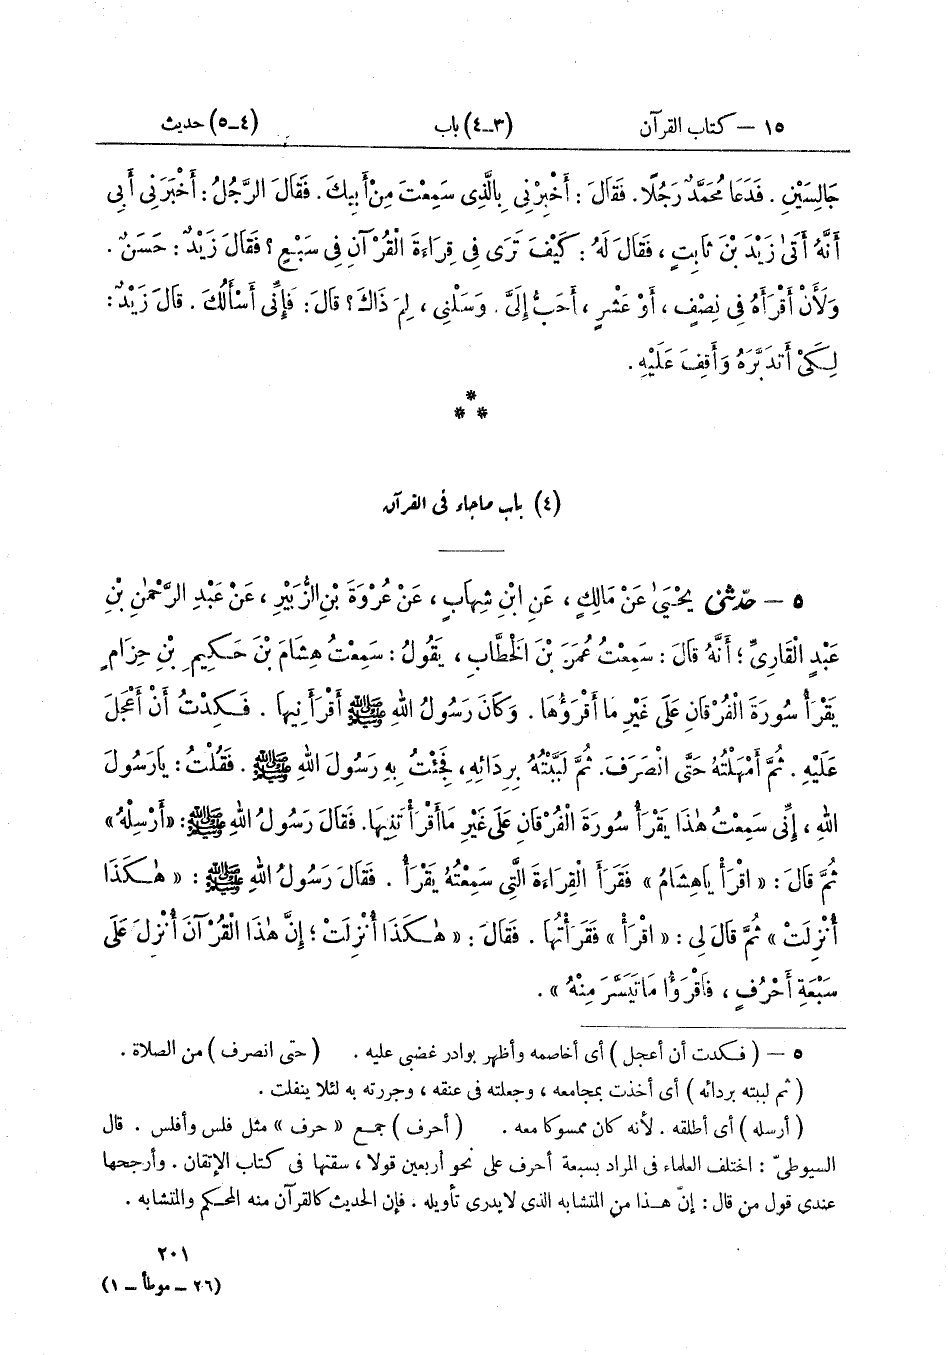 ١٥ – كتاب القرآن (٣ــ٤) باب (٤ــ٥) حديث
جَالِسَيْنِ . فَدَعَا مُحَمَّدٌ رَجُلًا. فَقَالَ : أَخْبِرْنِي بِالَّذِى سَمِعْتَ مِنْ أَبِيكَ . فَقَالَ الرَّجُلُ : أَخْبَرَنِي أَبِي
أَنَّهُ أَتَى زَيْدَ بْنَ ثَابِتٍ ، فَقَالَ لَهُ : كَيْفَ تَرَى فِى قِرَاءَةِ الْقُرْآنِ فِى سَبْعٍ ؟ فَقَالَ زَيْدٌ : حَسَنٌ .
وَلَأَنْ أَقْرَأَهُ فِى نِصْفٍ ، أَوْ عَشْرٍ ، أَحَبُّ إِلَىَّ . وَسَلْنِى ، لِمَ ذَاكَ ؟ قَالَ : فَإِنِّى أَسْأَلُكَ . قَالَ زَيْدٌ :
لِكَىْ أَتَدَبَّرَهُ وَأَقِفَ عَلَيْهِ .
*
* *
(٤) باب ماجاء فى القرآن
٥ – حدّثنى يَحْيَىٰ عَنْ مَالِكٍ ، عَنِ ابْنِ شِهَابٍ ، عَنْ عُرْوَةَ بْنِ الزُّبَيْرِ ، عَنْ عَبْدِ الرَّحْمٰنِ بْنِ
عَبْدٍ الْقَارِىِّ ؛ أَنَّهُ قَالَ : سَمِعْتُ عُمَرَ بْنَ الْخَطَّابِ ، يَقُولُ : سَمِعْتُ هِشَامَ بْنَ حَكِيمِ بْنِ حِزَامٍ
يَقْرَأُ سُورَةَ الْفُرْقَانِ عَلَى غَيْرِ مَا أَقْرَؤُهَا . وَكَانَ رَسُولُ اللهِ ﷺ أَقْرَأَنِيهَا . فَكِدْتُ أَنْ أَعْجَلَ
عَلَيْهِ . ثُمَّ أَمْهَلْتُهُ حَتَّى انْصَرَفَ. ثُمَّ لَبَّبْتُهُ بِرِدَائِهِ ، فَجِئْتُ بِهِ رَسُولَ اللهِ ﷺ . فَقُلْتُ : يَارَسُولَ
اللهِ ، إِنِّى سَمِعْتُ هٰذَا يَقْرَأُ سُورَةَ الْفُرْقَانِ عَلَى غَيْرِ مَا أَقْرَأْتَنِيهَا. فَقَالَ رَسُولُ اللهِ ﷺ : «أَرْسِلْهُ»
ثُمَّ قَالَ : « اقْرَأْ يَاهِشَامُ » فَقَرَأَ الْقِرَاءَةَ الَّتِى سَمِعْتُهُ يَقْرَأُ . فَقَالَ رَسُولُ اللهِ ﷺ : « هٰكَذَا
أُنْزِلَتْ » ثُمَّ قَالَ لِى : « اقْرَأْ » فَقَرَأْتُهَا . فَقَالَ : « هٰكَذَا أُنْزِلَتْ ؛ إِنَّ هٰذَا الْقُرْآنَ أُنْزِلَ عَلَى
سَبْعَةِ أَحْرُفٍ ، فَاقْرَؤُا مَا تَيَسَّرَ مِنْهُ » .
٥ – ( فكدت أن أعجل ) أى أخاصمه وأظهر بوادر غضبى عليه . ( حتى انصرف ) من الصلاة .
( ثم لببته بردائه ) أى أخذت بمجامعه ، وجعلته فى عنقه ، وجررته به لئلا ينفلت .
( أرسله ) أى أطلقه . لأنه كان ممسوكا معه . ( أحرف ) جمع « حرف » مثل فلس وأفلس . قال
السيوطىّ : اختلف العلماء فى المراد بسبعة أحرف على نحو أربعين قولا ، سقتها فى كتاب الإتقان . وأرجحها
عندى قول من قال : إنّ هــذا من المتشابه الذى لايدرى تأويله . فإن الحديث كالقرآن منه المحكم والمتشابه .
٢٠١
(٢٦ – موطأ – ١)